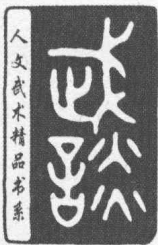 人文武术精品书系
武谈